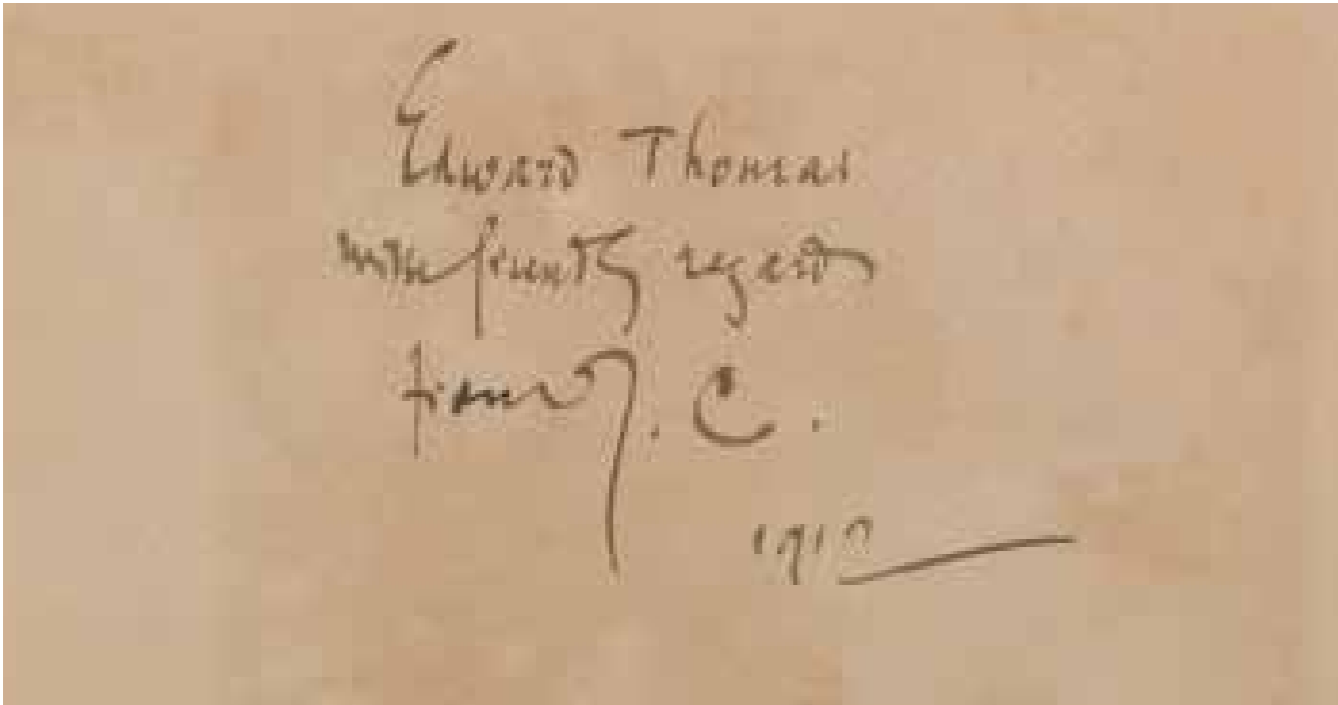 Edward Thomas
with friendly regards
from J. C.